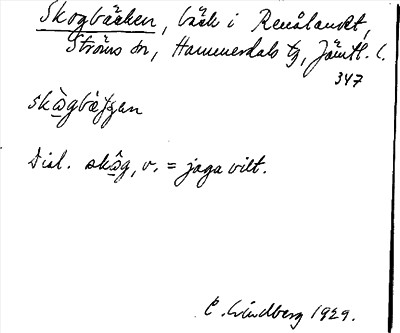 Skogbäcken, bäck i Renålandet,
Ströms sn, Hammerdals tg, Jämtl. l.
347
skò̱gbæ̀ʃʒen
Dial. skô̱g, v. = jaga vilt.
C. Lindberg 1929.